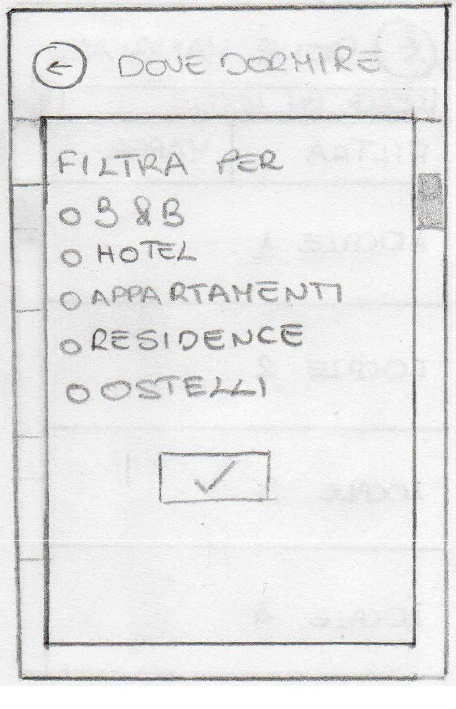 DOVE DORMIRE
FILTRA PER
B & B
HOTEL
APPARTAMENTI
RESIDENCE
OSTELLI